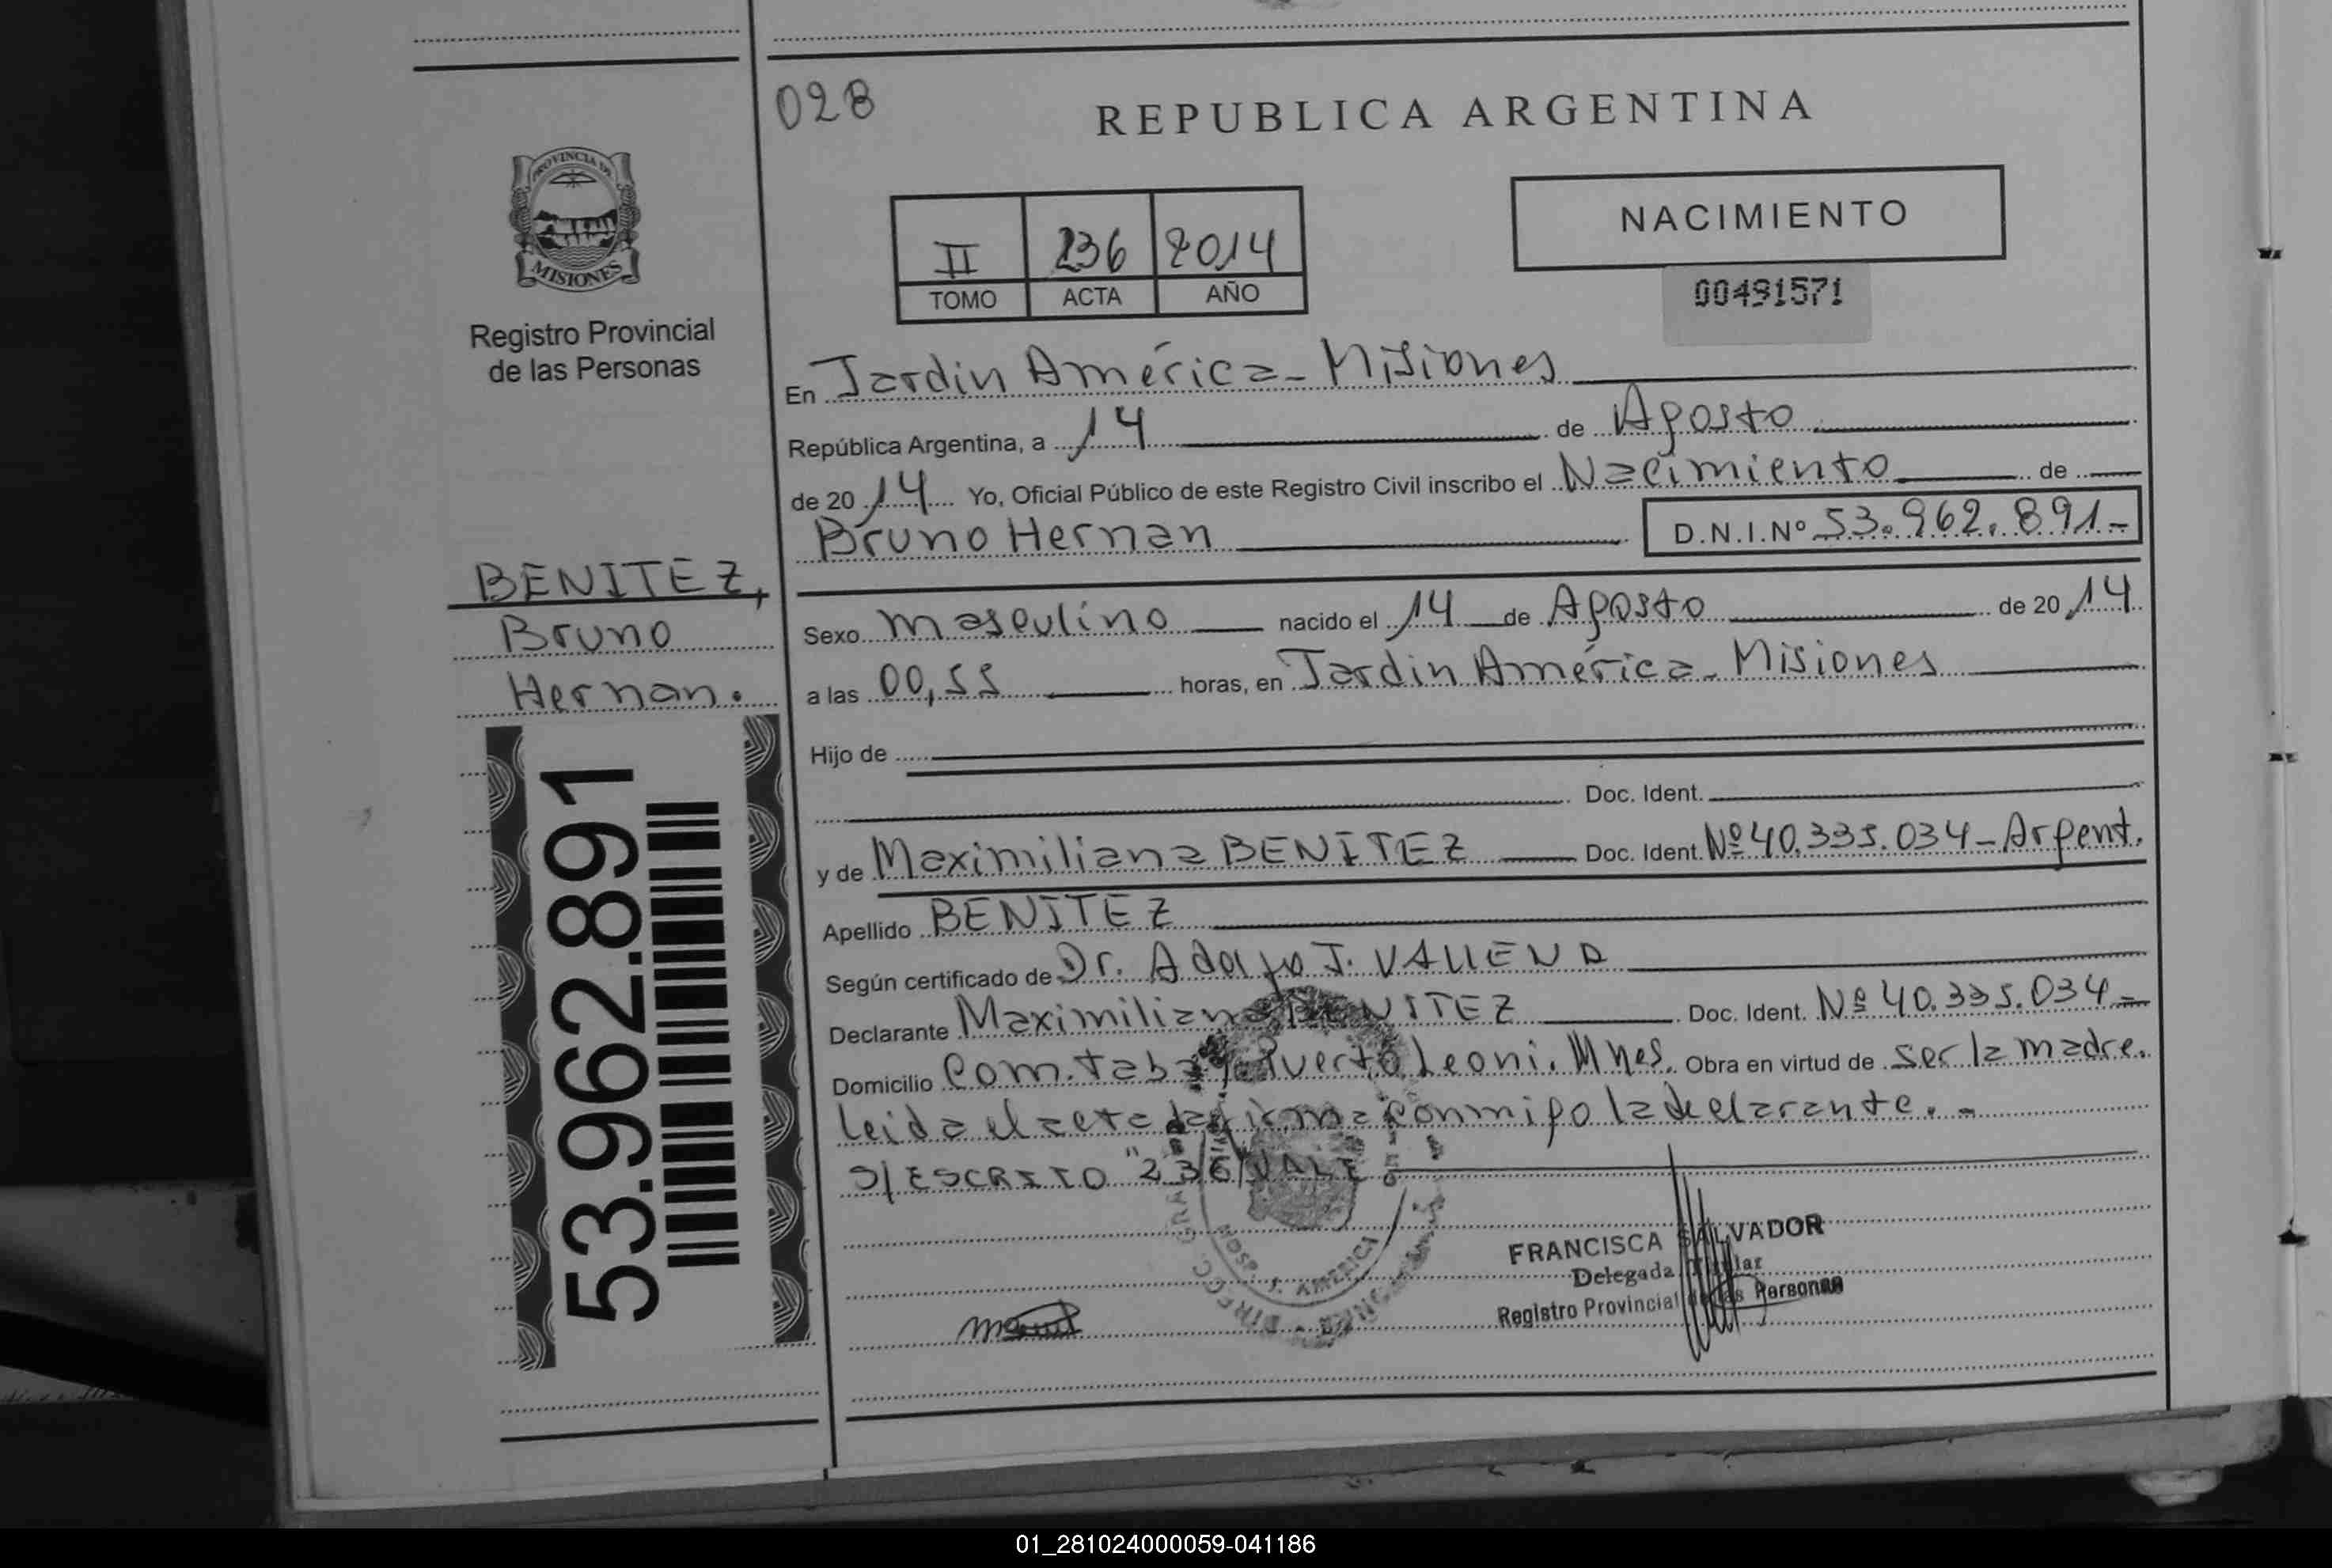 028
REPUBLICA ARGENTINA
PROVINCIA DE
MISIONES
Registro Provincial
de las Personas
II 236 2014
TOMO ACTA AÑO
NACIMIENTO
00491571
En Jardin América - Misiones
República Argentina, a 14 de Agosto
de 20 14 Yo, Oficial Público de este Registro Civil inscribo el Nacimiento de
Bruno Hernan D.N.I.Nº 53.962.891-
BENITEZ,
Bruno
Hernan.
53.962.891
Sexo masculino nacido el 14 de Agosto de 20 14
a las 00,55 horas, en Jardin América - Misiones
Hijo de
Doc. Ident.
y de Maximiliana BENITEZ Doc. Ident. Nº 40.335.034 - Argent.
Apellido BENITEZ
Según certificado de Dr. Adolfo J. VALLEND
Declarante Maximiliana BENITEZ Doc. Ident. Nº 40.335.034 =
Domicilio Com. Puerto Leoni. Mnes. Obra en virtud de ser la madre.
Leida el acta la firma conmigo la declarante. -
S/ESCRITO "236" VALE
FRANCISCA SALVADOR
Delegada Titular
Registro Provincial de las Personas
01_281024000059-041186